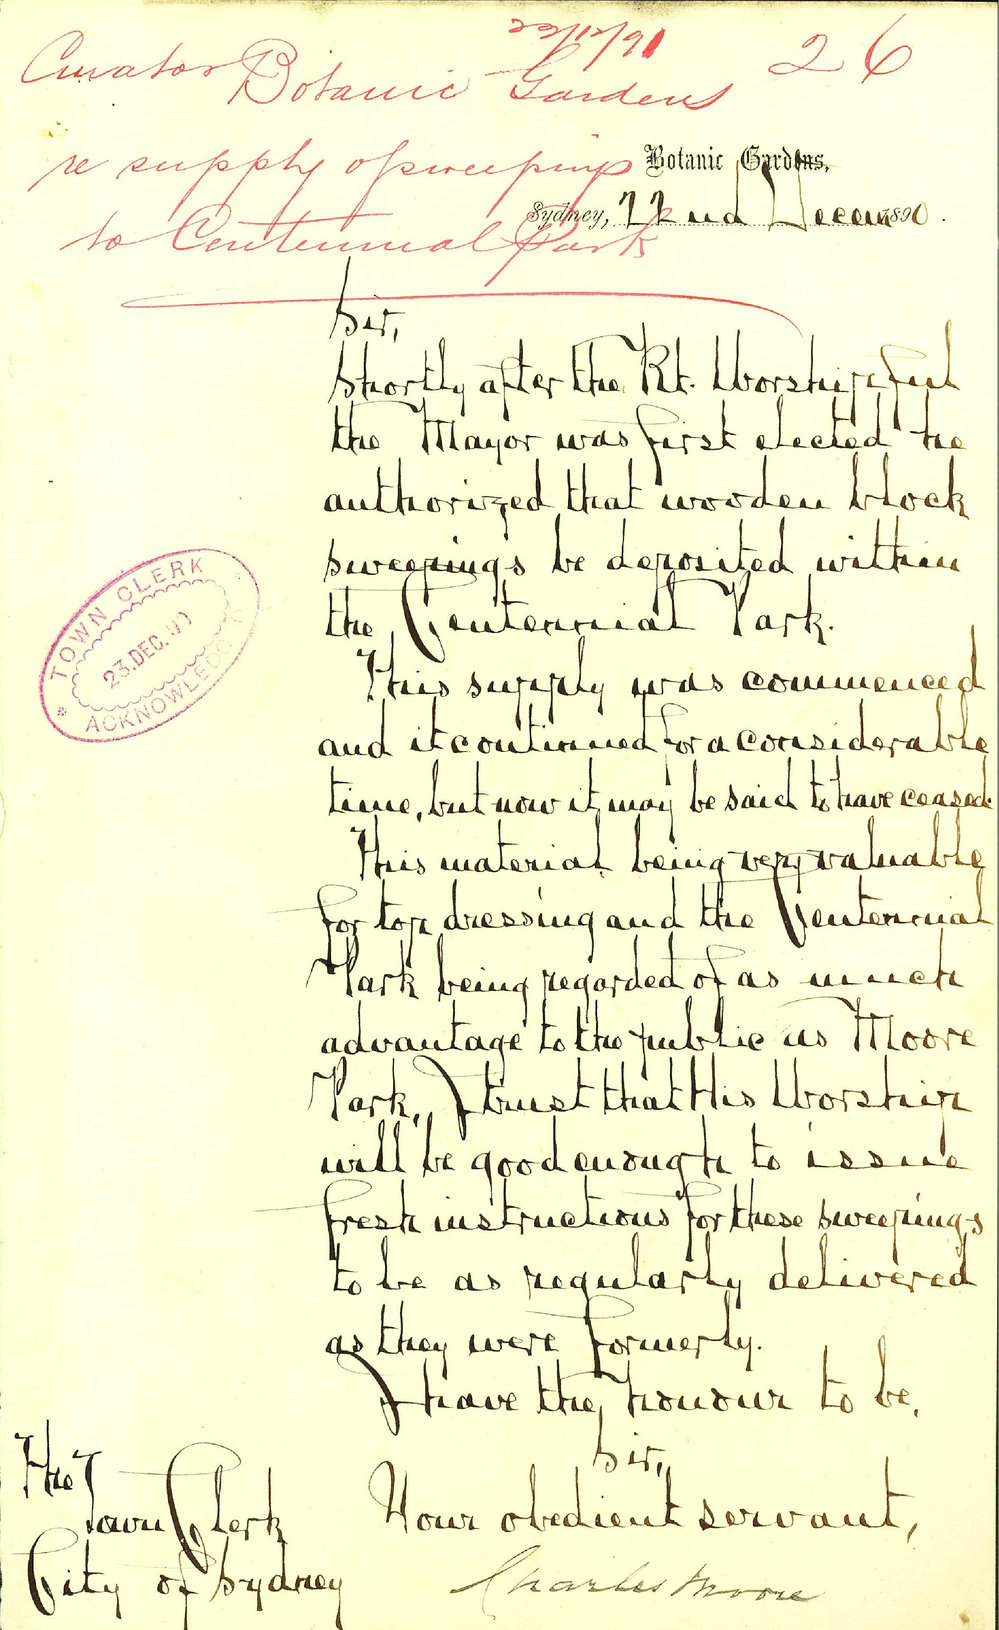 22/12/90
26
Curator Botanic Gardens
re supply of sweepings
to Centennial Park
Botanic Gardens,
Sydney, 22nd Decem 1890.
Sir,
Shortly after the Rt. Worshipful
the Mayor was first elected he
authorized that wooden block
sweepings be deposited within
the Centennial Park.
This supply was commenced
and it continued for a considerable
time, but now it may be said to have ceased.
This material being very valuable
for top dressing and the Centennial
Park being regarded of as much
advantage to the public as Moore
Park, I trust that His Worship
will be good enough to issue
fresh instructions for these sweepings
to be as regularly delivered
as they were formerly.
I have the honour to be,
Sir,
Your obedient servant,
Charles Moore
The
Town Clerk
City of Sydney
TOWN CLERK
23.DEC.90
ACKNOWLEDGED